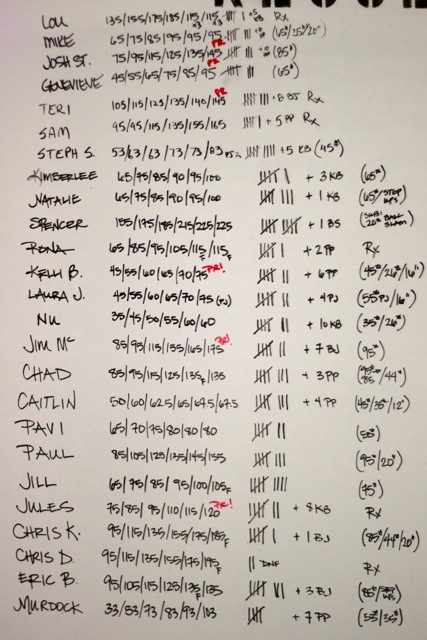 LOU 135/155/175/185/115/115 |||| | Rx
MIKE 65/75/85/95/95/95 PR |||| ||| (65#/35#/20")
JOSH ST. 75/95/115/125/135/145 PR |||| ||| (85#)
GENEVIEVE 45/55/65/75/85/95 PR |||| ||| (65#)
TERI 105/115/125/135/140/145 |||| ||| + 8 BJ Rx
SAM 95/95/115/135/155/165 |||| | + 5 PP Rx
STEPH S. 53/63/63/73/73/83 |||| |||| + 5 KB (45#)
KIMBERLEE 65/75/85/90/95/100 |||| | + 3 KB (65#)
NATALIE 65/75/85/90/95/100 |||| ||| + 1 KB (65#/STEP UPS)
SPENCER 155/175/195/215/225/225 |||| |||| + 1 BS (SUB: 20# BALL SLAM)
RONA 65/85/95/105/115F/115F |||| | + 2 PP Rx
KELLI B. 45/55/60/65/70/75 PR! |||| || + 6 PP (45#/26#/16")
LAURA J. 45/55/60/65/70/75 (PJ) |||| || + 4 PJ (55#PJ/16")
NU 35/45/50/55/60/60 |||| || + 10 KB (35#/26#)
JIM Mc 85/95/115/155/165/175 PR! |||| || + 7 BJ (95#)
CHAD 85/95/115/125/135F/135 |||| ||| + 3 PP (85/44#)
CAITLIN 50/60/62.5/65/67.5/67.5 |||| ||| + 4 PP (45#/35#/12")
PAVI 65/70/75/80/80/80 |||| || (50#)
PAUL 85/105/125/135/145/155 |||| ||| (95#/20")
JILL 65/75/85/95/100/105F |||| |||| (75#)
JULES 75/85/95/110/115/120 PR! |||| || + 8 KB Rx
CHRIS K. 95/115/135/155/175/185F |||| || + 1 BJ (85#/44#/20")
CHRIS D. 95/115/135/155/175/195F || DNF Rx
ERIC B. 95/105/115/125/135F/135 |||| | + 3 BJ (85#/STEP UPS)
MURDOCK 33/53/73/83/93/103 |||| + 7 PP (55#/35#)